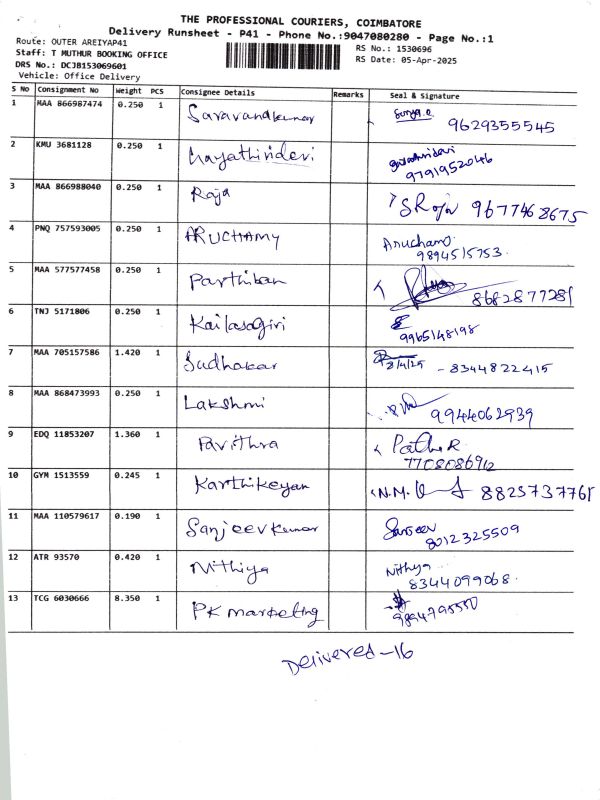 THE PROFESSIONAL COURIERS, COIMBATORE
Delivery Runsheet - P41 - Phone No.:9047080280 - Page No.:1
Route: OUTER AREIYAP41
Staff: T MUTHUR BOOKING OFFICE
DRS No.: DCJB153069601
Vehicle: Office Delivery
RS No.: 1530696
RS Date: 05-Apr-2025
S No Consignment No Weight PCS Consignee Details Remarks Seal & Signature
1 MAA 866987474 0.250 1 Saravanakumar Surya.e 9629355545
2 KMU 3681128 0.250 1 Gayathiridevi gayathridevi 9791952046
3 MAA 866988040 0.250 1 Raja S Raja 9677468675
4 PNQ 757593005 0.250 1 ARUCHAMY Aruchamy 9894515753.
5 MAA 577577458 0.250 1 Parthiban 8682877281
6 TNJ 5171806 0.250 1 Kailasagiri 9965148198
7 MAA 705157586 1.420 1 Sudhakar 8/4/25 - 8344822415
8 MAA 868473993 0.250 1 Lakshmi 9944062939
9 EDQ 11853207 1.360 1 Pavithra 7708086912
10 GYM 1513559 0.245 1 Karthikeyan N.M. 8825737761
11 MAA 110579617 0.190 1 Sanjeevkumar Sanjeev 8012325509
12 ATR 93570 0.420 1 Nithiya Nithya 8344099068.
13 TCG 6030666 8.350 1 PK marketing
Delivered-16